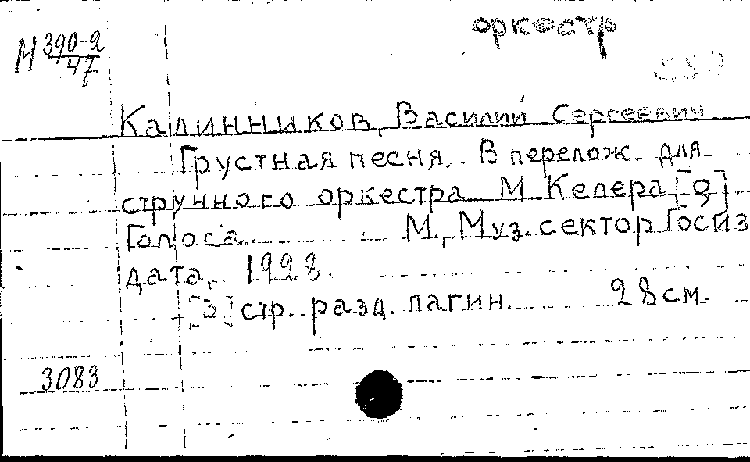 оркестр
М 390-2
47
Калинников, Василий Сергеевич
Грустная песня. В перелож. для
струнного оркестра М. Келера [-д]
Голоса. М., Муз. сектор Госиз
дата, 1928.
[3] стр. разд. пагин. 28 см.
3083